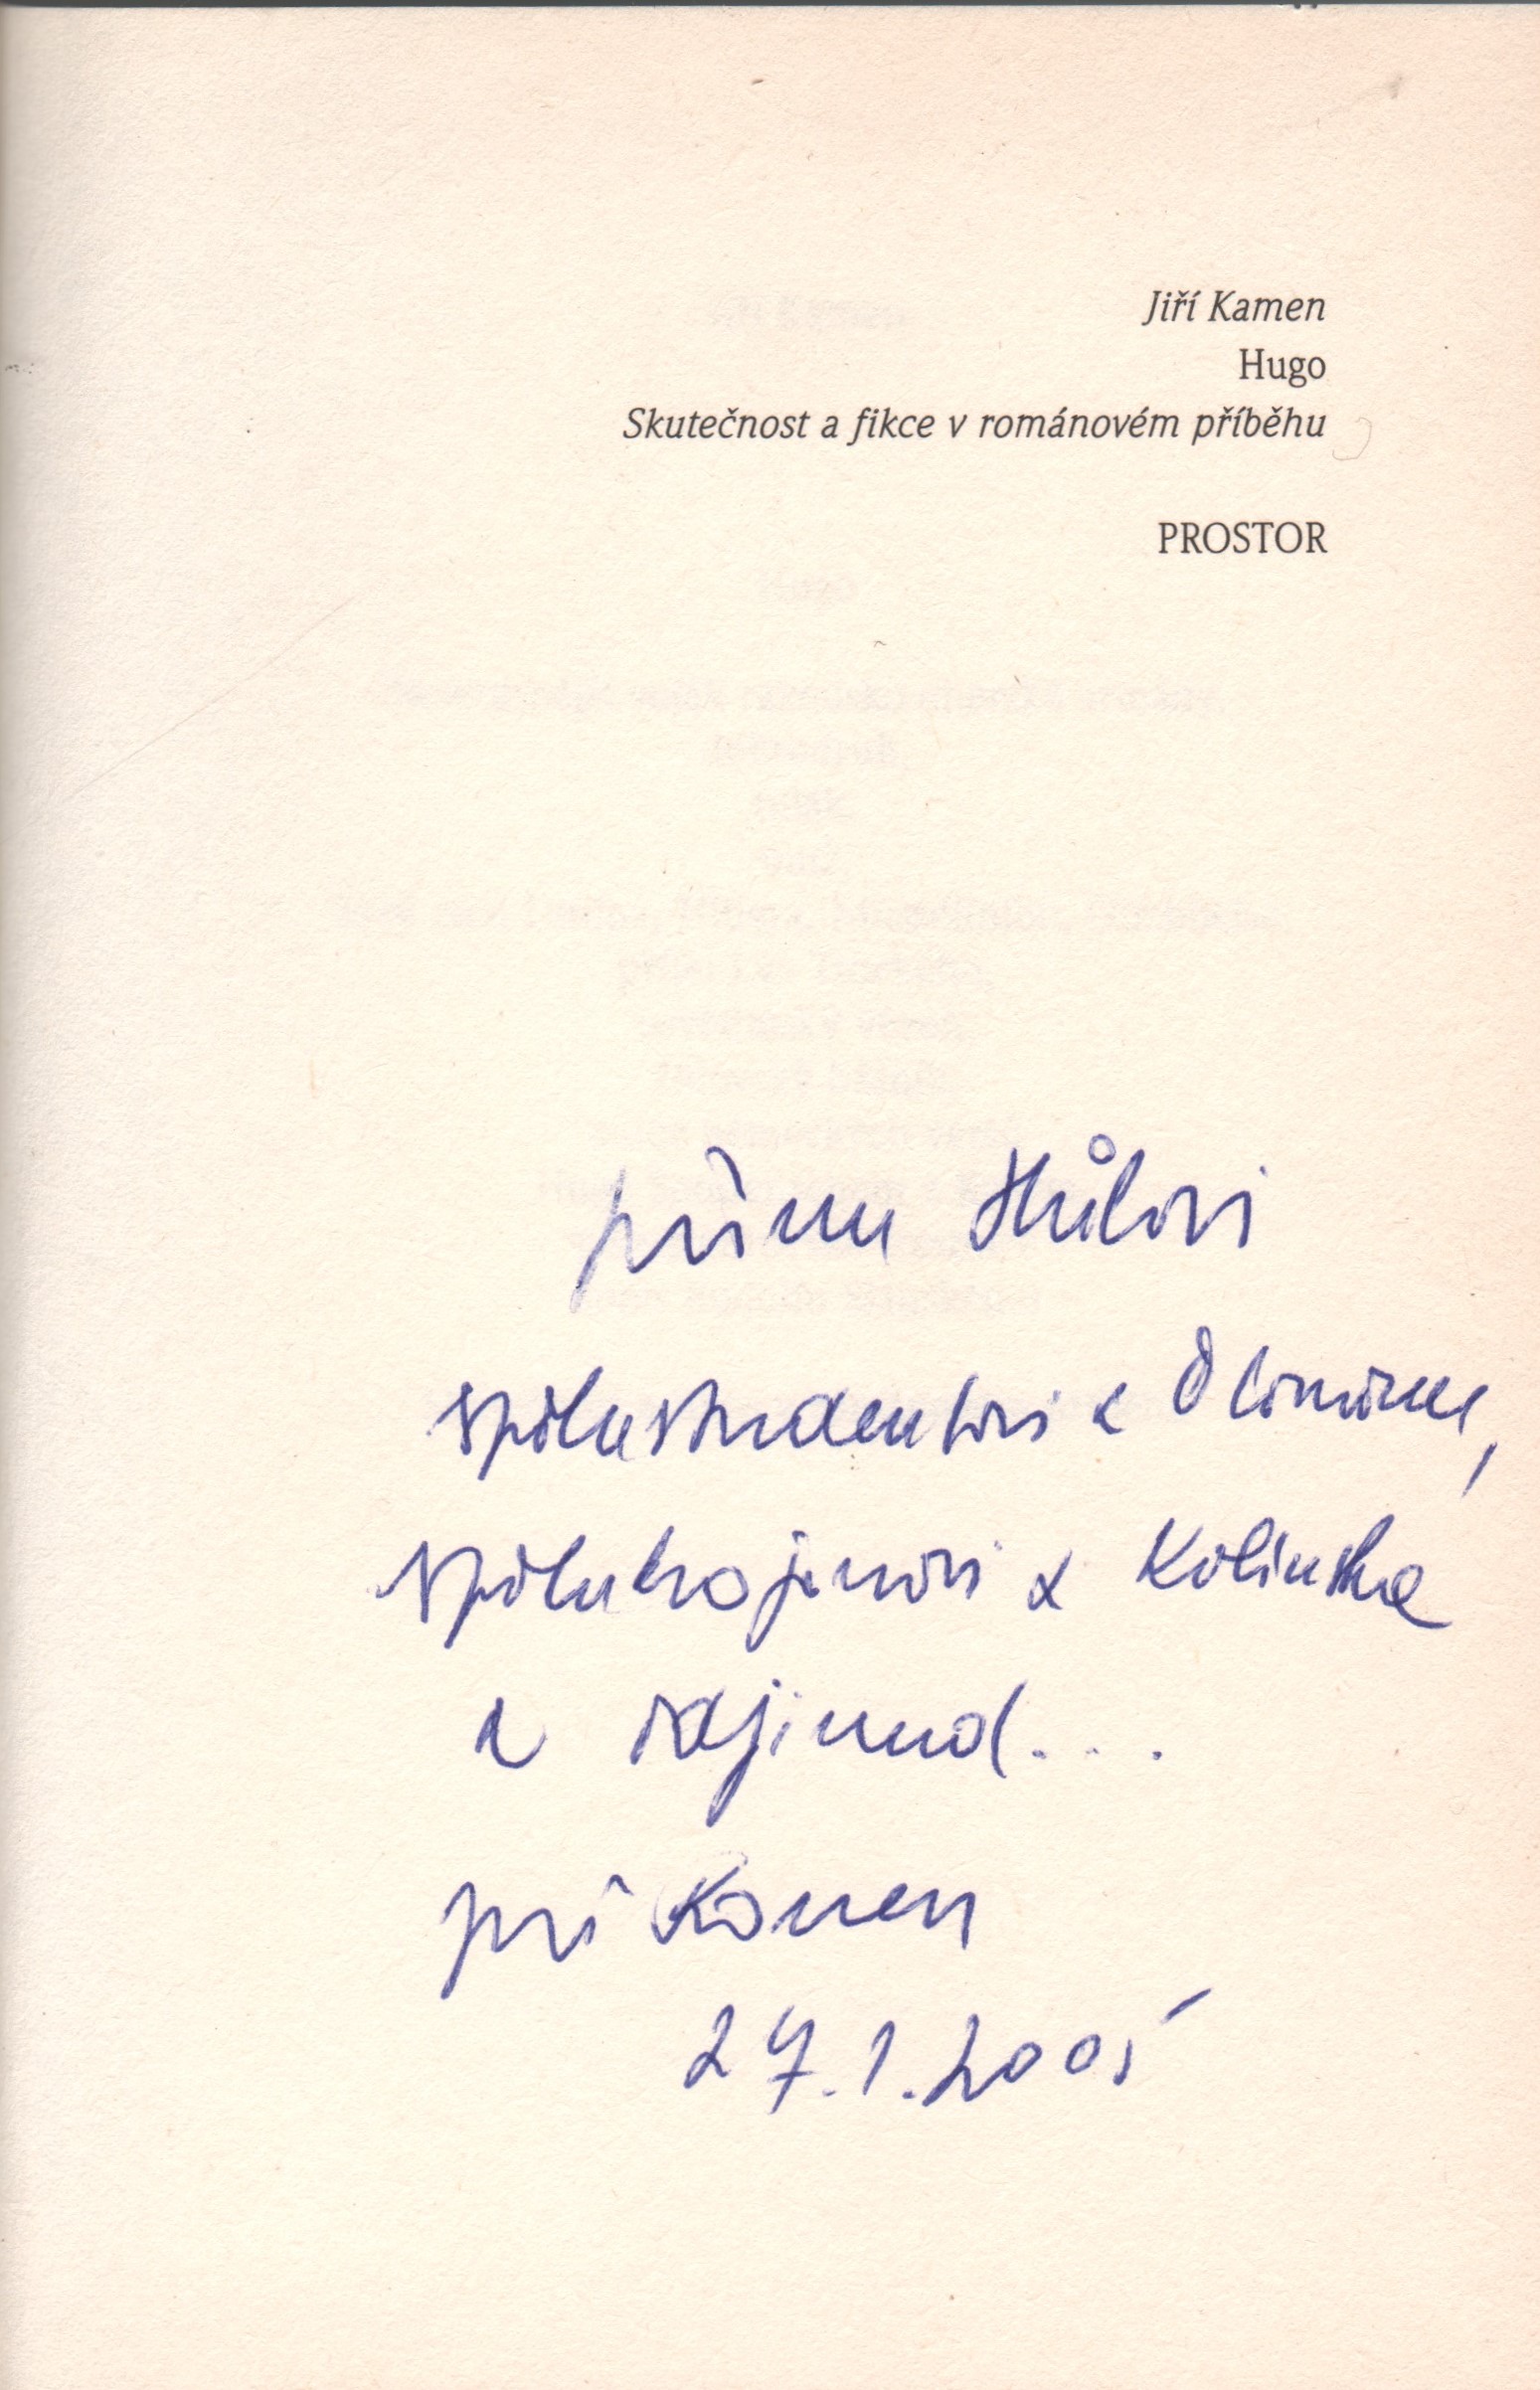 Jiří Kamen
Hugo
Skutečnost a fikce v románovém příběhu
PROSTOR
Hůlovi
spolustudentovi z Olomouce,
spolukrajanovi z Kolínska
a
Kamen
27.1.2005